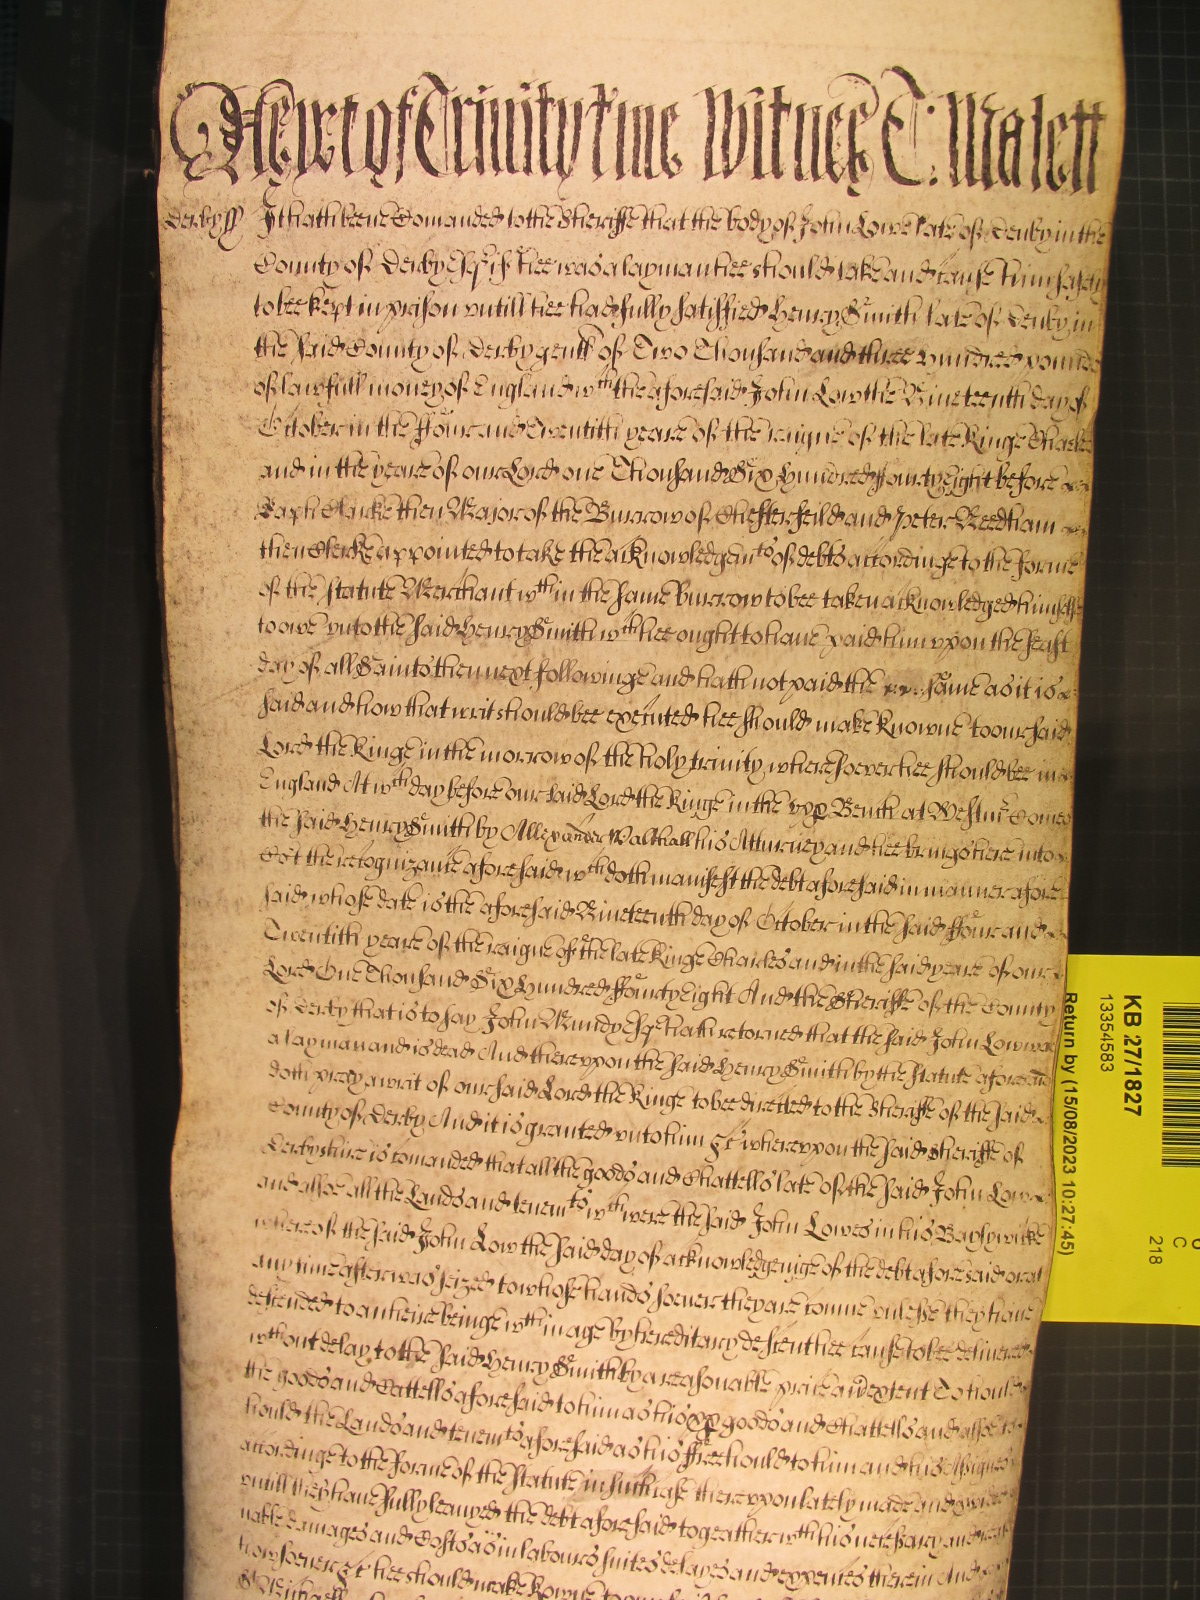 As yet of Trinity Tme Witnes T: Malett
Derby ss It hath beene Comanded to the Sheriffe that the body of John Lowe late of Denby in the
County of Derby Esqr if hee was a layman hee should take and cause him safely
to bee kept in prison untill hee had fully satisfied Henry Smith late of Denby in
the said County of Derby gentl of Two Thousand and three hundred pounds
of lawfull money of England wch the aforesaid John Low the Nineteenth day of
October in the ffour and Twentith yeare of the raigne of the late Kinge Charles
and in the yeare of our Lord one Thousand Six Hundred ffourty Eight before
Clarke then Major of the Burrow of Chesterfeild and Peter Needham
then Clerke appointed to take the acknowledgemts of debts accordinge to the forme
of the statute Merchant wthin the same Burrow to bee taken acknowledged himselfe
to owe unto the said Henry Smith wch hee ought to have paid him upon the feast
day of all Saints then next followinge and hath not paid the same as it is
said and how that writ should bee executed hee should make knowne to our said
Lord the Kinge in the morrow of the holy trinity wheresoever hee should bee in
England At wch day before our said Lord the Kinge in the upp Bench at Westmr Comes
the said Henry Smith by Allexander Walthall his Atturney and hee brings here into
Cot the recognizance aforesaid wch doth manifest the debt aforesaid in manner afore
said whose date is the aforesaid Nineteenth day of October in the said ffour and
Twentith yeare of the raigne of the late Kinge Charles and in the said yeare of our
Lord One Thousand Six Hundred ffourty Eight And the Sheriffe of the County
of Derby that is to say John Mundy Esqr hath retorned that the said John Low was
a layman and is dead And thereupon the said Henry Smith by the statute aforesaid
doth pray a writ of our said Lord the Kinge to bee directed to the Sheriffe of the said
County of Derby And it is granted unto him &c whereupon the said sheriffe of
Derbyshire is comanded that all the goods and Chattells late of the said John Low
and alsoe all the Lands and tenemts wch were the said John Lowes in his Baylywicke
whereof the said John Low the said day of acknowledgeinge of the debt aforesaid or at
any time after was seized to whose hands soever they are comme unlesse they have
descended to an heire beinge wthin age by hereditary descent hee cause to bee delivered
wthout delay to the said Henry Smith by a reasonable price and extent To hould
the goods and Cattells aforesaid to him as his pp goods and Chattells and alsoe to
hould the Lands and tenemts aforesaid as his ffreehould to him and his Assignes
accordinge to the forme of the statute in such case thereupon lately made and provided
untill they have fully leavyed the debt aforesaid togeather wth his necessary and reaso
nable damages and Costs as in labours suites delayes and expences therein And
howsoever &c hee should make
St Michaell
KB 27/1827
13354583
Return by (15/08/2023 10:27:45)
C
218